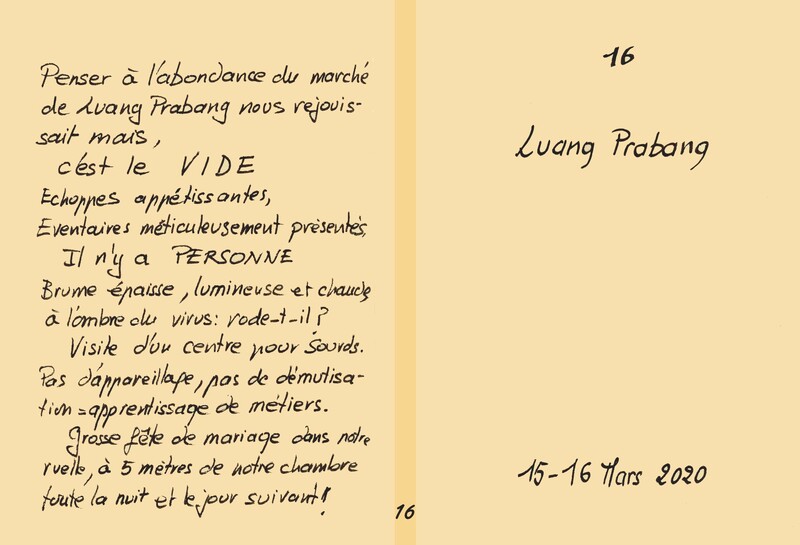 Penser à l'abondance du marché
de Luang Prabang nous rejouis-
sait mais,
c'est le VIDE
Echoppes appétissantes,
Eventaires méticuleusement présentés,
Il n'y a PERSONNE
Brume épaisse, lumineuse et chaude
à l'ombre du virus: rode-t-il?
Visite d'un centre pour Sourds.
Pas d'appareillage, pas de démutisa-
tion = apprentissage de métiers.
Grosse fête de mariage dans notre
ruelle, à 5 mètres de notre chambre
toute la nuit et le jour suivant!
16
16
Luang Prabang
15-16 Mars 2020